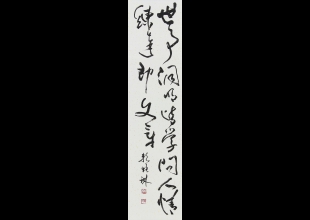 世事洞明皆学问人情
练达即文章